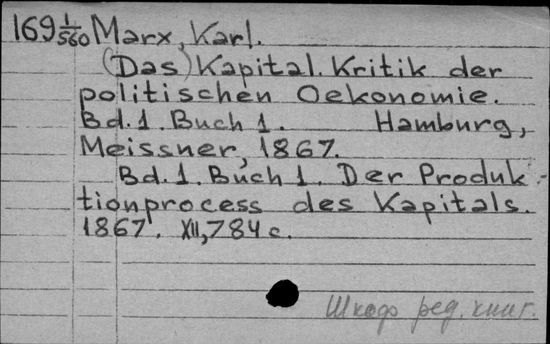 169 1/560 Marx, Karl.
(Das) Kapital. Kritik der
politischen Oekonomie.
Bd. 1. Buch 1. Hamburg,
Meissner, 1867.
Bd. 1. Buch 1. Der Produk-
tionprocess des Kapitals.
1867. XII, 784 c.
Шкаф ред. книг.